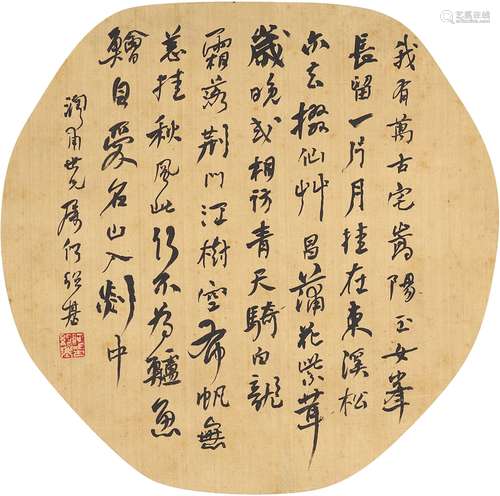 我有萬古宅嵩陽玉女峯
長留一片月挂在東溪松
尒去掇仙艸昌蒲花紫茸
歲晚或相訪青天騎白龍
霜落荆門江樹空布帆無
恙挂秋風此行不為鱸魚
鱠自愛名山入剡中
潤甫世兄屬何紹基
艺典中国